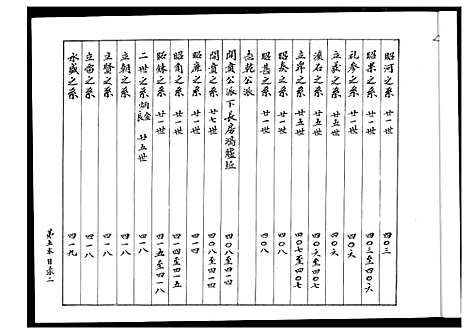 昭河之系 廿一世 四〇三
昭果之系 廿一世 四〇三至四〇六
礼参之系 廿一世 四〇六
立義之系 廿五世 四〇六
漢石之系 廿五世 四〇六至四〇七
立岸之系 廿五世 四〇七至四〇七
昭奏之系 廿一世 四〇八
昭甚之系 廿一世 四〇八
志乾公派
開貴公派下長房渦墟坵 四〇八至四一四
開貴之系 廿七世 四〇八至四一四
昭廉之系 廿一世 四一四
昭角之系 廿一世 四一四至四一五
昭妹之系 廿一世 四一五至四一八
二世之系 廿五世 四一八
立朝之系 四一八
立賢之系 四一八
立富之系 四一八
永盛之系 四一九
第五本目录二